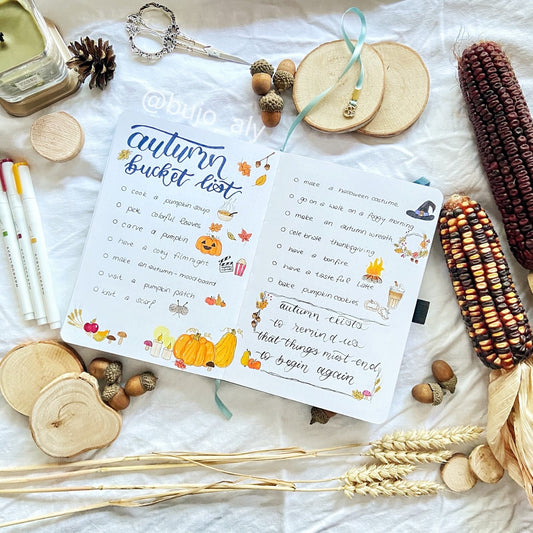 @bujo_aly
autumn
bucket list
cook a pumpkin soup
pick colorful leaves
carve a pumpkin
have a cosy filmnight
make an autumn-moodboard
visit a pumpkin patch
knit a scarf
make a halloween costume
go on a walk on a foggy morning
make an autumn wreath
celebrate thanksgiving
have a bonfire
have a tasteful latte
bake pumpkin cookies
autumn exists
to remind us
that things must end
to begin again